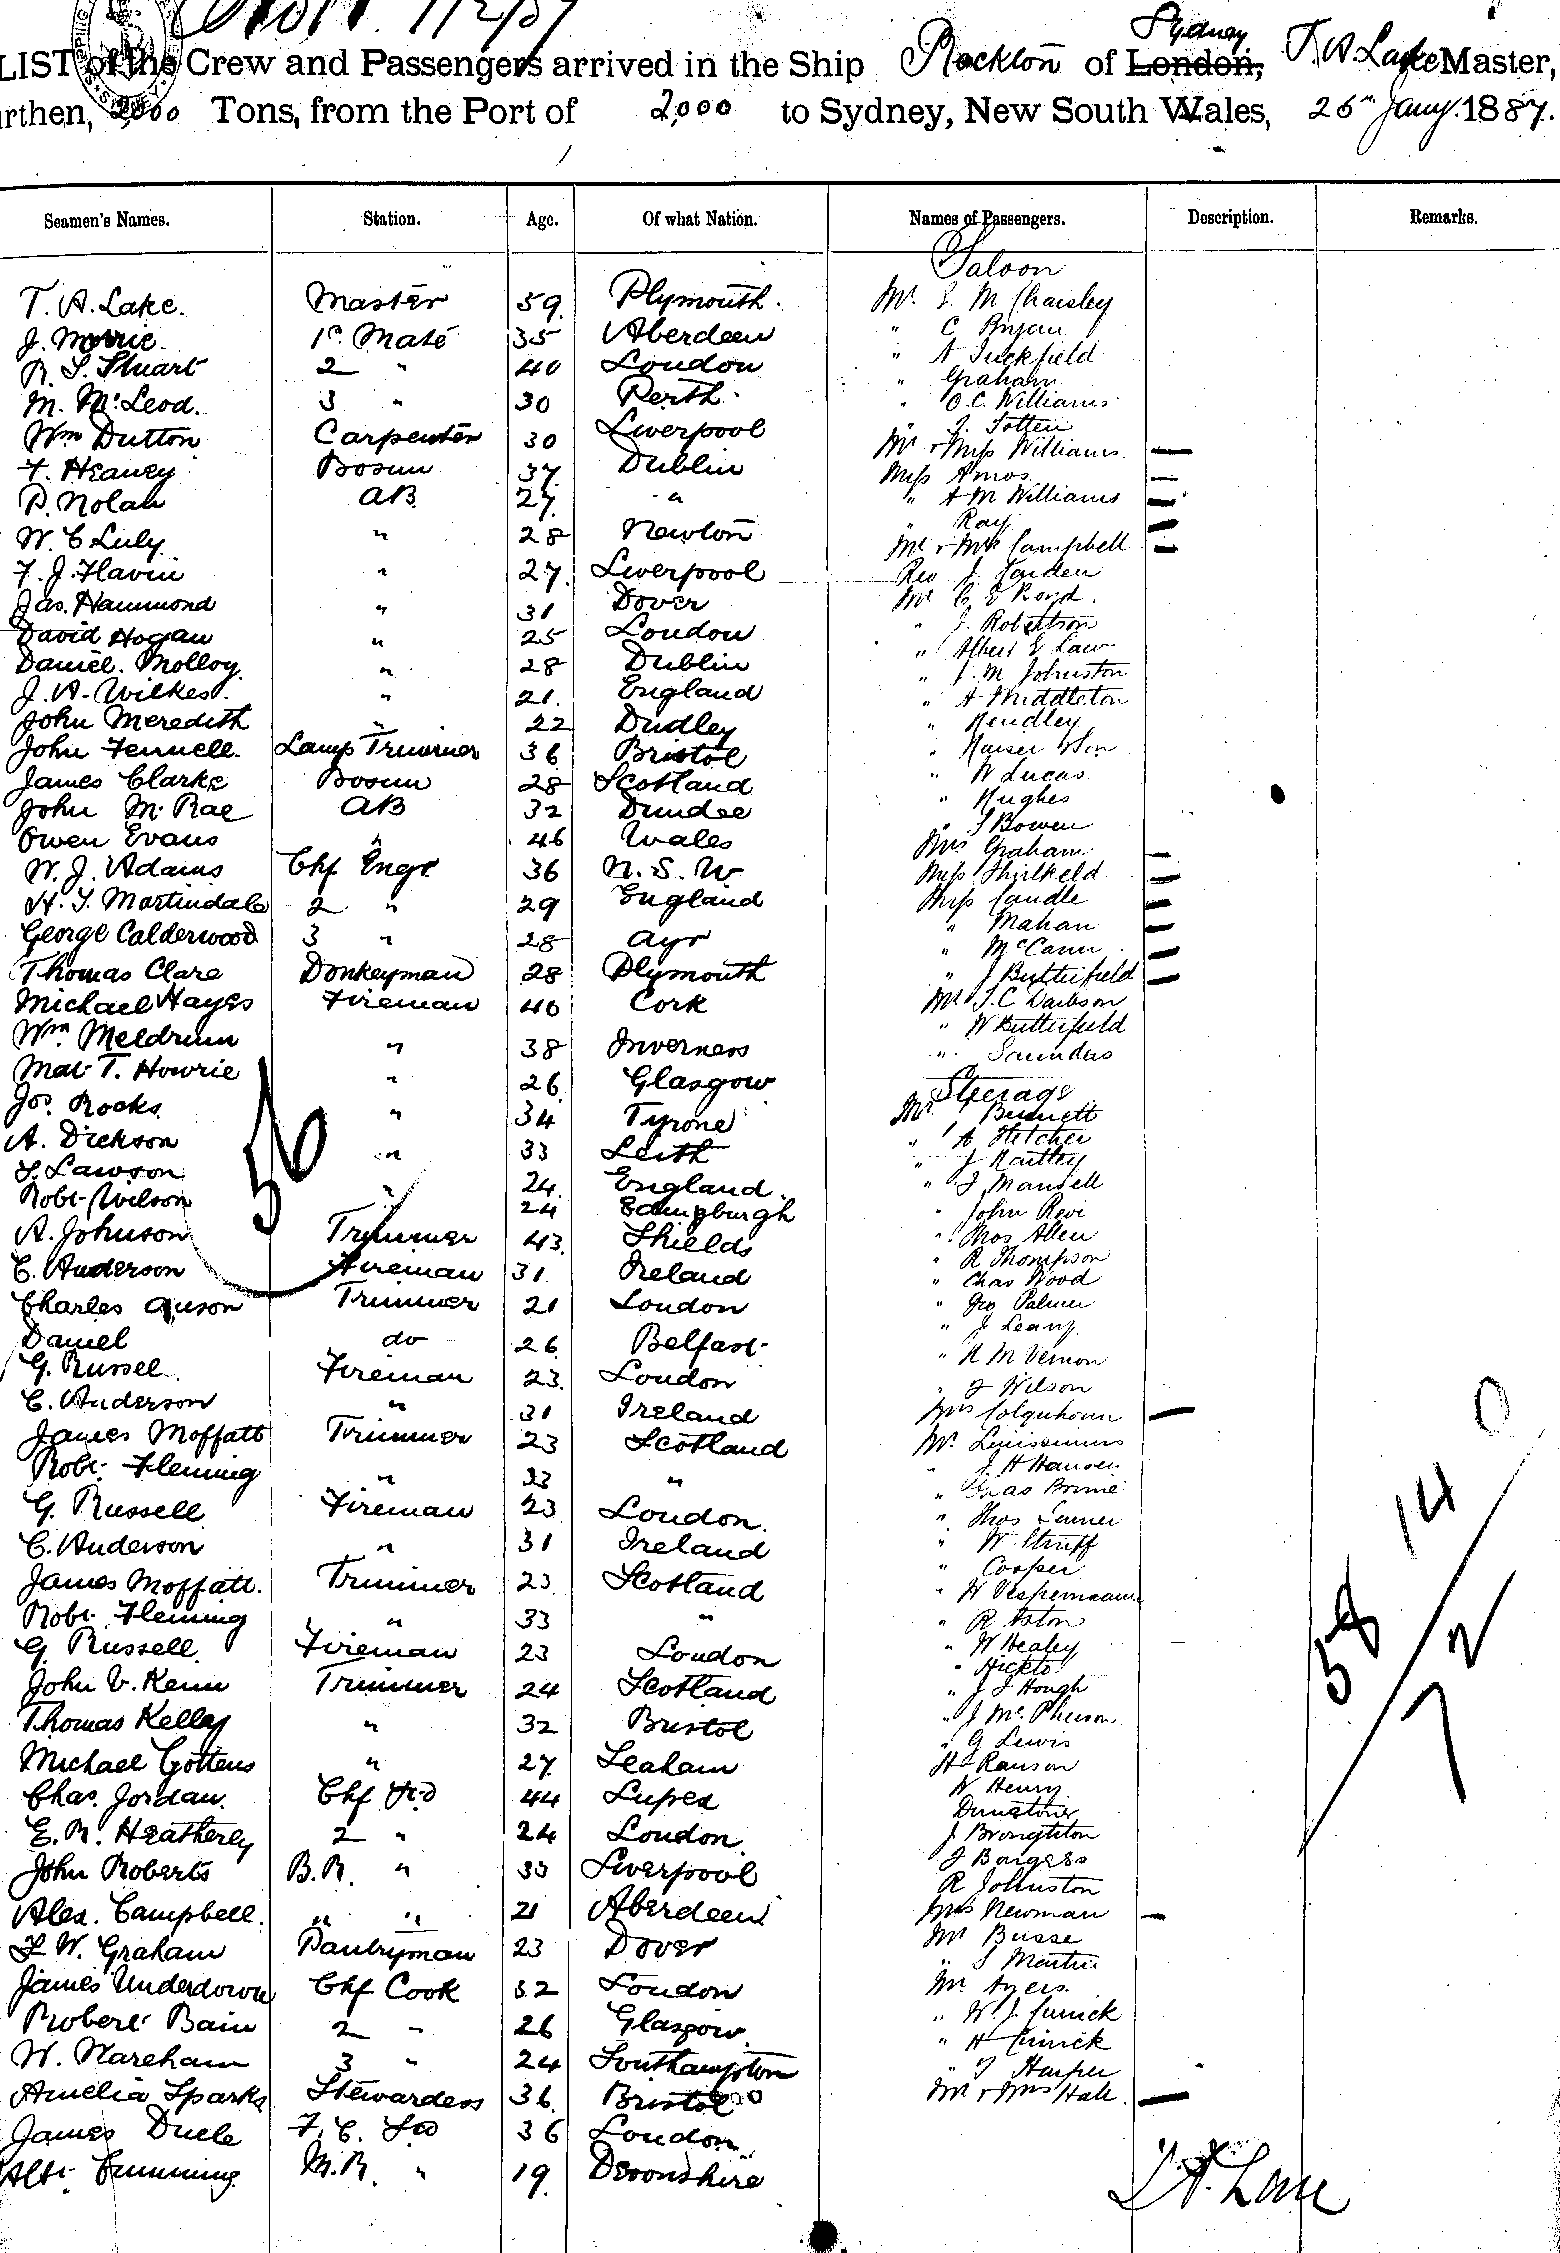 LIST of the Crew and Passengers arrived in the Ship Rockton of London, Sydney T. A. Lake Master,
rthen, 2000 Tons, from the Port of 2,000 to Sydney, New South Wales, 26th Jany. 1887.
Seamen's Names. Station. Age. Of what Nation. Names of Passengers. Description. Remarks.
Saloon
T. A. Lake. Master 59 Plymouth. Mr. M Charsley
J. Morrie. 1st Mate 35 Aberdeen " C Bryan
R. S. Stuart 2 " 40 London " A Tuckfield
M. McLeod. 3 " 30 Perth. " Graham
" O.C. Williams
Wm Dutton Carpenter 30 Liverpool " Totten
F. Heaney Bosun 37 Dublin Mr & Miss Williams
P. Nolan AB 27 " Miss Amos
" A M Williams
W. C Luly " 28 Newton " Ray
F. J. Flavin " 27 Liverpool Mr & Mrs Campbell
Jas. Hammond " 31 Dover Rev J. Carden
David Hogan " 25 London Mr C E Royd.
Daniel. Molloy " 28 Dublin " J. Robertson
J. A. Wilkes. " 21. England " Albert E Law
John Meredith " 22 Dudley " J. M Johnston
John Fennell. Lamp Trimmer 36 Bristol " A Middleton
James Clarke Bosun 28 Scotland " Hendley
John McRae AB 32 Dundee " Kaiser & Son
Owen Evans " 46 Wales " W Lucas
W. J. Adams Chf Engr 36 N. S. W " Hughes
H. S. Martindale 2 " 29 England " Bowen
George Calderwood 3 " 28 Ayr Mrs Graham
Thomas Clare Donkeyman 28 Plymouth Miss Thirlkeld
Michael Hayes Fireman 40 Cork Miss Caudle
Wm Meldrum " 38 Inverness " Mahan
Mat T. Howrie " 26 Glasgow " McCann
Jos. Rocks " 34 Tyrone " J Butterfield
A. Dickson " 33 Leith Mr J.C Davison
S. Lawson " 24. England. " W Butterfield
Robt Wilson 24 Edingburgh " Saundas
A. Johnson Trimmer 43. Shields
Steerage
C. Anderson Fireman 31. Ireland Mr. Bennett
Charles Trimmer 21 London " A Fletcher
Daniel do 26 Belfast " J Hartley
G. Russel. Fireman 23. London " J Mansell
C. Anderson " 31 Ireland " John Revi
James Moffatt Trimmer 23 Scotland " Thos Allen
Robt. Fleming " 33 " " R Thompson
G. Russell Fireman 23 London. " Chas Wood
C. Anderson " 31 Ireland " Geo Palmer
James Moffatt. Trimmer 23 Scotland " J Leany
Robt. Fleming " 33 " " R M Vernon
G. Russell. Fireman 23 London " J Wilson
John V. Kenn Trimmer 24 Scotland Mrs Colquhoun
Thomas Kelley " 32 Bristol Mr.
Michael Gottens " 27 Seaham " J. H Hansen
Chas. Jordan. Chf Std 44 " Chas Brime
E. R. Heatherley 2 " 24 London " Thos
John Roberts B.R. " 33 Liverpool " W Struff
Alex. Campbell. " " 21 Aberdeen " Cooper
F W. Graham Pantryman 23 Dover " H Vespermann
James Underdown Chf Cook 32 London " R Aston
Robert Bain 2 " 26 Glasgow " W Healey
W. Wareham 3 " 24 Southampton " Hickto
Amelia Sparks Stewardess 36. Bristol " J J Hough
James Duele F. C. Std 36 London " J McPherson
Albt. Cumming M.R. " 19. Devonshire " G Lewis
H Ranson
W Henry
Dunstone
J Broughton
J Burgess
R Johnston
Mrs Newman
Mr Busse
" S Martin
Mr Ayers.
" W. J. Currick
" H Currick
" J Harper
Mr & Mrs Hall.
56
58
14
0
72
T A. Lake